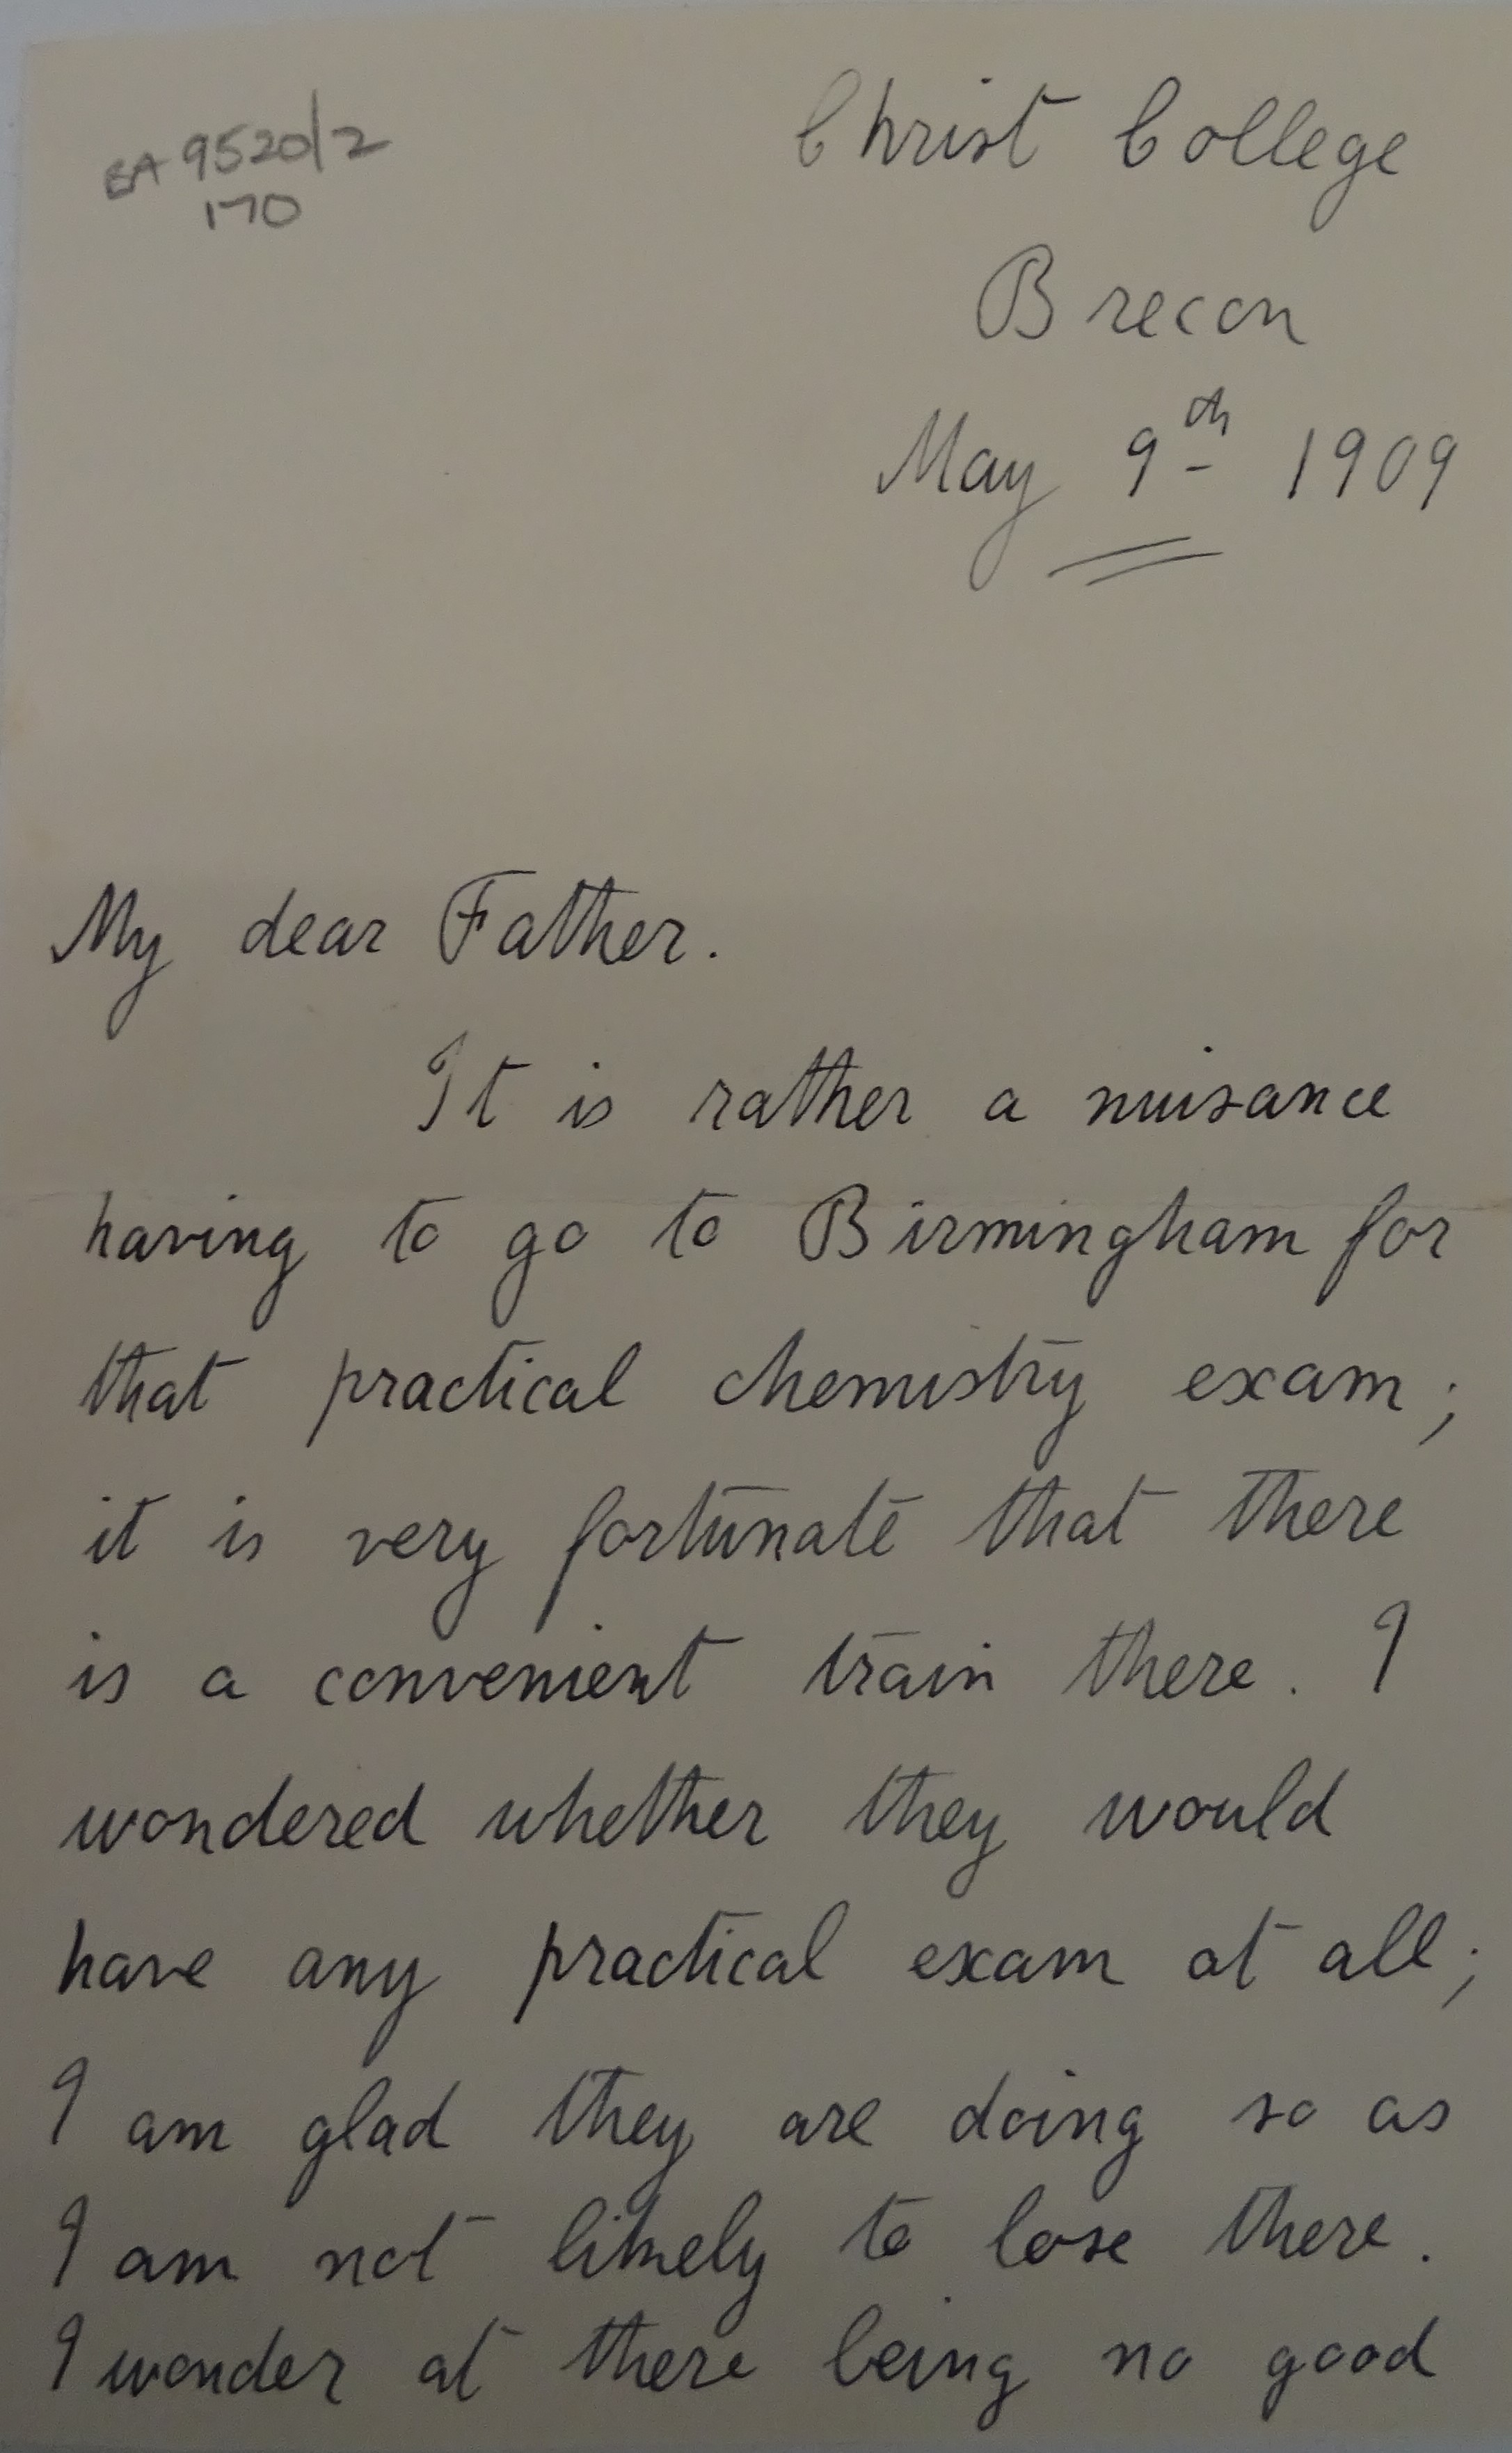 EA 9520/2
170
Christ College
Brecon
May 9th 1909
My dear Father.
It is rather a nuisance
having to go to Birmingham for
that practical chemistry exam;
it is very fortunate that there
is a convenient train there. I
wondered whether they would
have any practical exam at all;
I am glad they are doing so as
I am not likely to lose there.
I wonder at there being no good